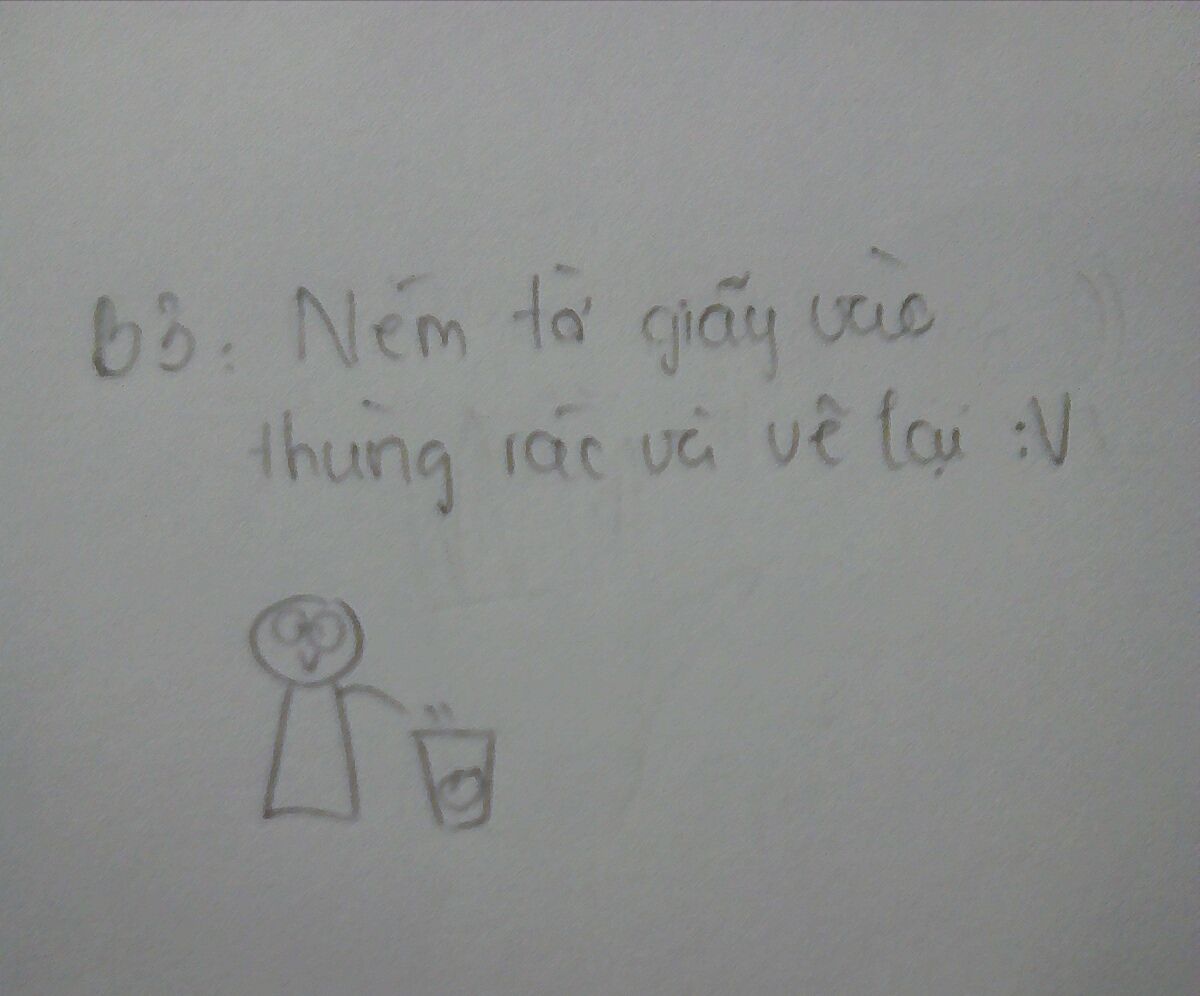 B3: Ném tờ giấy vào
thùng rác và vẽ lại :V